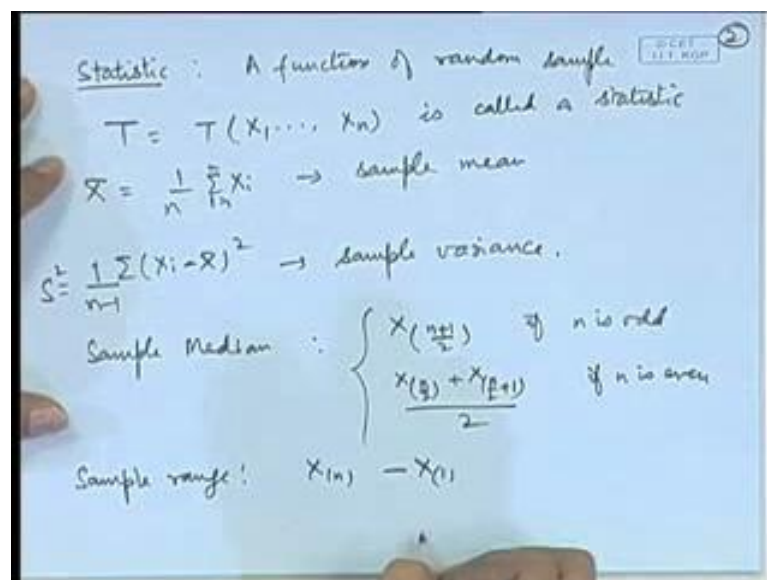 Statistic : A function of random sample
© CET
I.I.T. KGP
2
T = T(X1, ..., Xn) is called a statistic
X̄ = 1/n Σ Xi → sample mean
S² = 1/(n-1) Σ(Xi - X̄)² → sample variance.
Sample Median : { X((n+1)/2) if n is odd
(X(n/2) + X(n/2+1))/2 if n is even
Sample range : X(n) - X(1)